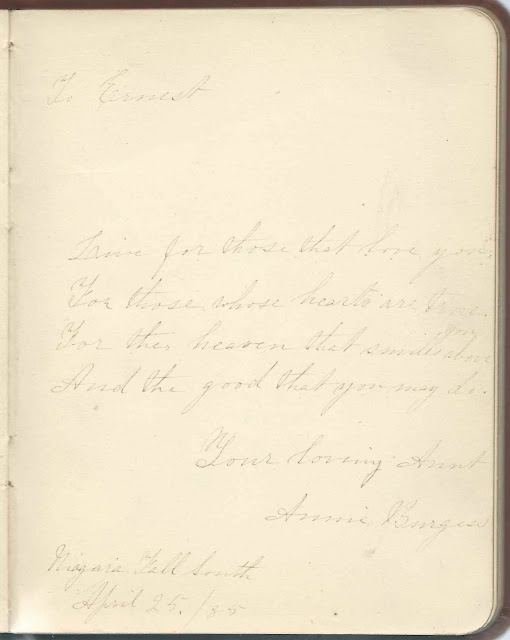 To Ernest
Live for those that love you,
For those whose hearts are true.
you
For the heaven that smiles above
And the good that you may do.
Your loving Aunt
Annie Burgess
Niagara Fall South
April 25. /85